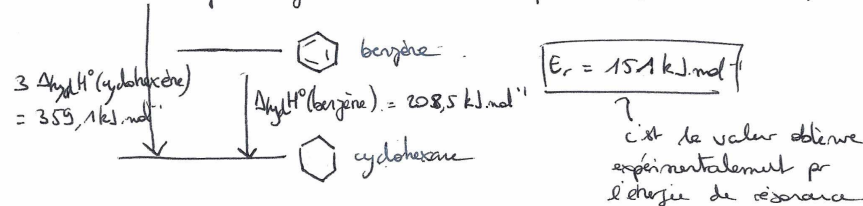 benzène.
3 ΔhydH°(cyclohexène)
= 359,1 kJ.mol⁻¹
ΔhydH°(benzène) = 208,5 kJ.mol⁻¹
cyclohexane
Er = 151 kJ.mol⁻¹
c'est la valeur obtenue
expérimentalement pr
l'énergie de résonance